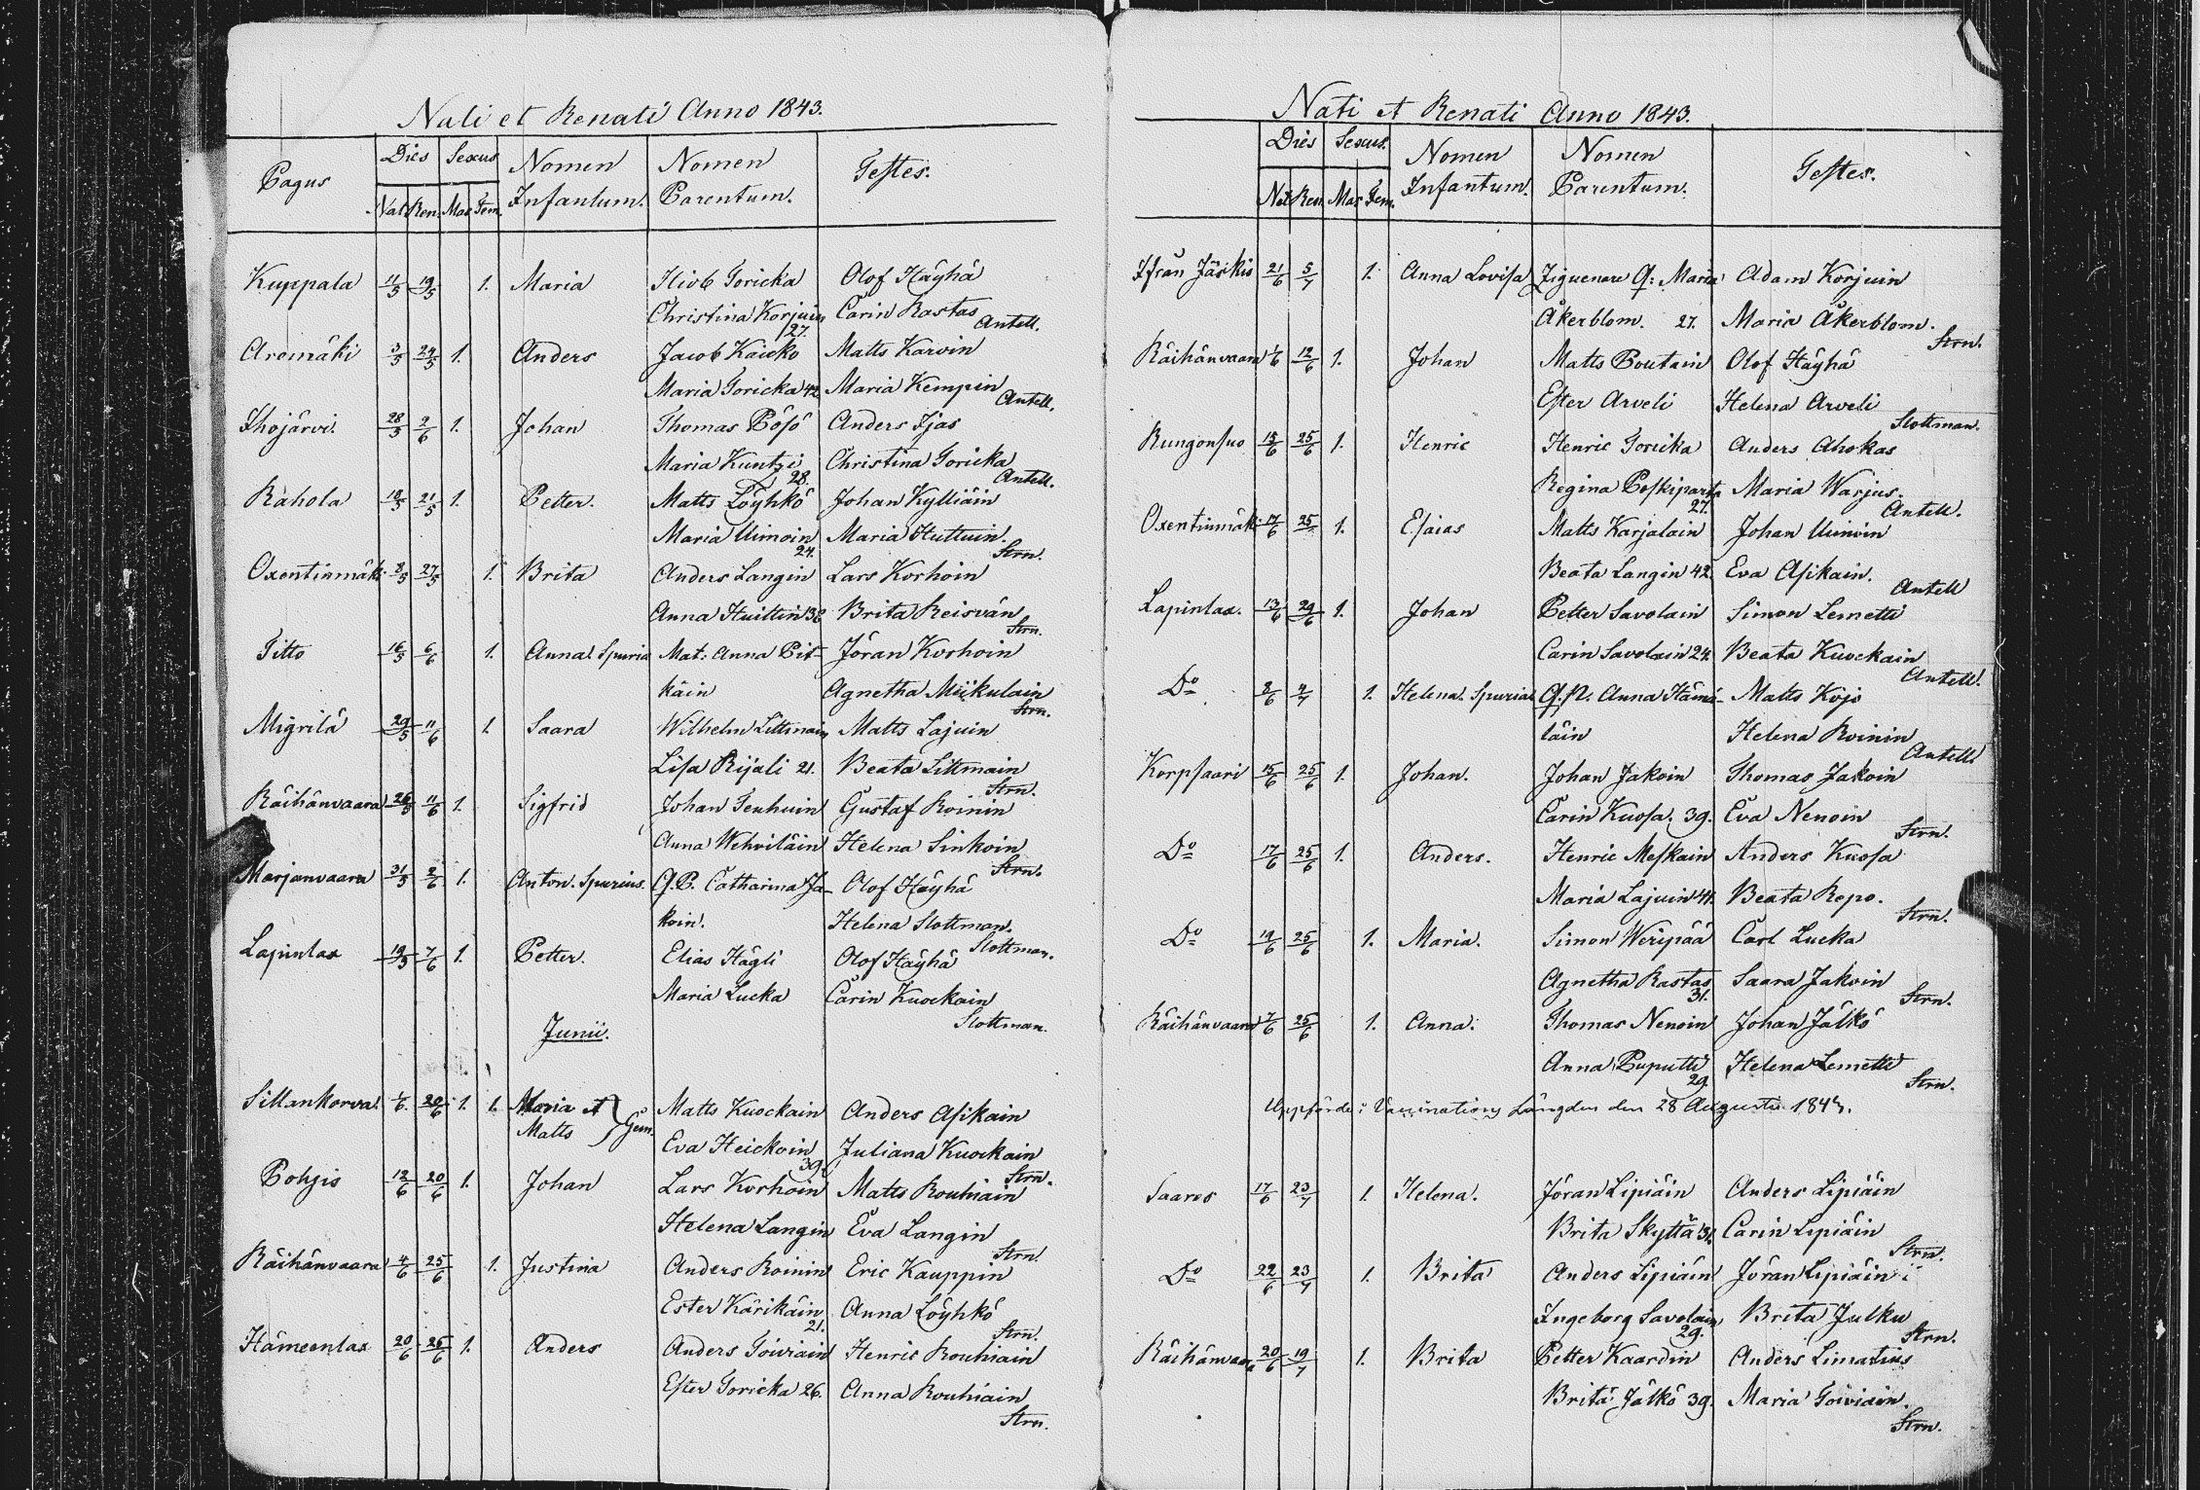 Nati et Renati Anno 1843.
Pagus Dies Sexus Nomen Infantum. Nomen Parentum. Testes.
Nat. Ren. Mas Fem.
Kuppala 11/5 19/5 1. Maria Hiob Toricka Olof Häyhä
Christina Korjuin 27. Carin Rastas Antell.
Aromäki 3/5 24/5 1. Anders Jacob Kaicko Matts Karvin
Maria Toricka 42 Maria Kempin Antell.
Ihojärvi. 28/5 2/6 1. Johan Thomas Pösö Anders Ijas
Maria Kuntzi 28. Christina Toricka Antell.
Rahola 18/5 21/5 1. Petter. Matts Löyhkö Johan Kylliäin
Maria Uimoin 24. Maria Huttuin. Strn.
Oxentinmäki 8/5 27/5 1. Brita Anders Langin Lars Korhoin
Anna Huittin 38 Brita Reisvän Strn.
Titto 16/5 6/6 1. Anna. Spuria Mat: Anna Pit- Jöran Korhoin
käin Agnetha Miikulain Strn.
Migrilä 29/5 11/6 1. Saara Wilhelm Littmain Matts Lajuin
Lisa Rijali 21. Beata Littmain Strn.
Räihänvaara 26/5 11/6 1. Sigfrid Johan Tenhuin Gustaf Roinin
Anna Wehviläin Helena Sinkoin Strn.
Marjanvaara 31/5 2/6 1. Anton. Spurius. Q.P. Catharina Ja- Olof Häyhä
koin. Helena Slottman. Slottman.
Lapinlax 19/5 7/6 1. Petter. Elias Hägli Olof Häyhä
Maria Lucka Carin Kuockain Slottman.
Junii.
Sillankorva 1/6 20/6 1. 1. Maria et Matts Gem. Matts Kuockain Anders Asikain
Eva Heickoin 39. Juliana Kuockain Strn.
Pohjis 12/6 20/6 1. Johan Lars Korhoin Matts Rouhiain
Helena Langin Eva Langin Strn.
Räihänvaara 4/6 25/6 1. Justina Anders Roinin Eric Kauppin
Ester Kärikäin 21. Anna Löyhkö Strn.
Hämeenlax 20/6 25/6 1. Anders Anders Toiviain Henric Rouhiain
Ester Toricka 26. Anna Rouhiain Strn.
Nati et Renati Anno 1843.
Dies Sexus. Nomen Infantum. Nomen Parentum. Testes.
Nat Ren. Mas Fem.
Ifrån Jäskis 21/6 5/7 1. Anna Lovisa Ziguenare Q: Maria Adam Korjuin
Åkerblom. 27. Maria Åkerblom. Strn.
Räihänvaara 1/6 12/6 1. Johan Matts Poutain Olof Häyhä
Ester Arveli Helena Arveli Slottman.
Rungonsuo 15/6 25/6 1. Henric Henric Toricka Anders Ahokas
Regina Poskiparta 27. Maria Warjus. Antell.
Oxentinmäki 17/6 25/ 1. Esaias Matts Karjalain Johan Uimoin
Beata Langin 42. Eva Asikain. Antell
Lapinlax. 13/6 29/6 1. Johan Petter Savolain Simon Lemetti
Carin Savolain 24. Beata Kuockain Antell.
Do 2/6 2/7 1. Helena. Spuria Q.P. Anna Hämä- Matts Kojo
läin Helena Roinin Antell
Korpsaari 15/6 25/6 1. Johan. Johan Jakoin Thomas Jakoin
Carin Kuosa. 39. Eva Nenoin Strn.
Do 17/6 25/6 1. Anders. Henric Meskain Anders Kuosa
Maria Lajuin 41. Beata Repo. Strn.
Do 19/6 25/6 1. Maria. Simon Weripää Carl Lucka
Agnetha Rastas 31. Saara Jakoin Strn.
Räihänvaara 7/6 25/6 1. Anna. Thomas Nenoin Johan Jälkö
Anna Puputti 29. Helena Lemetti Strn.
Uppförde i Vaccinations Längden den 28 Augusti 1843.
Saares 17/6 23/7 1. Helena. Jöran Lipiäin Anders Lipiäin
Brita Skyttä 31. Carin Lipiäin Strn.
Do 22/6 23/7 1. Brita Anders Lipiäin Jöran Lipiäin
Ingeborg Savolain 29. Brita Julku Strn.
Räihänvaara 20/6 19/7 1. Brita Petter Kaardin Anders Limatius
Brita Jälkö 39. Maria Toiviain. Strn.